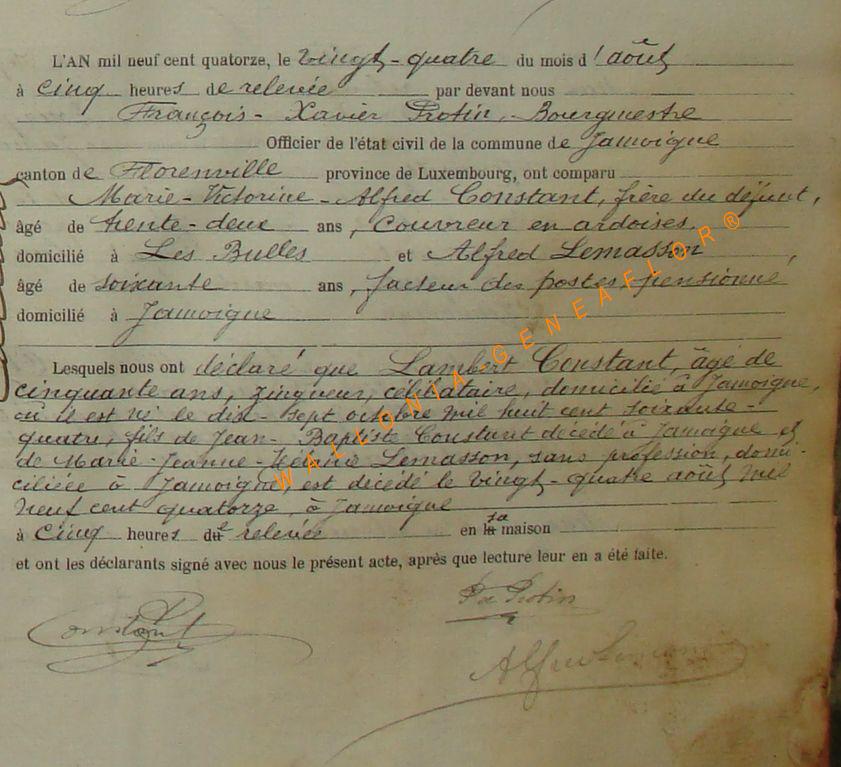 L'AN mil neuf cent quatorze, le vingt-quatre du mois d'août
à cinq heures de relevée par devant nous
François-Xavier Protin, Bourgmestre
Officier de l'état civil de la commune de Jamoigne
canton de Florenville province de Luxembourg, ont comparu
Marie-Victorine-Alfred Constant, frère du défunt,
âgé de trente-deux ans, couvreur en ardoises,
domicilié à Les Bulles et Alfred Lemasson,
âgé de soixante ans, facteur des postes pensionné
domicilié à Jamoigne
Lesquels nous ont déclaré que Lambert Constant, âgé de
cinquante ans, zingueur, célibataire, domicilié à Jamoigne,
où il est né le dix-sept octobre mil huit cent soixante-
quatre, fils de Jean-Baptiste Constant décédé à Jamoigne et
de Marie-Jeanne- Lemasson, sans profession, domi-
ciliée à Jamoigne, est décédé le vingt-quatre août mil
neuf cent quatorze, à Jamoigne
à cinq heures de relevée en sa maison
et ont les déclarants signé avec nous le présent acte, après que lecture leur en a été faite.
Protin
Constant
Alfred Lemasson
WALLONIA GENEAFLOR ®